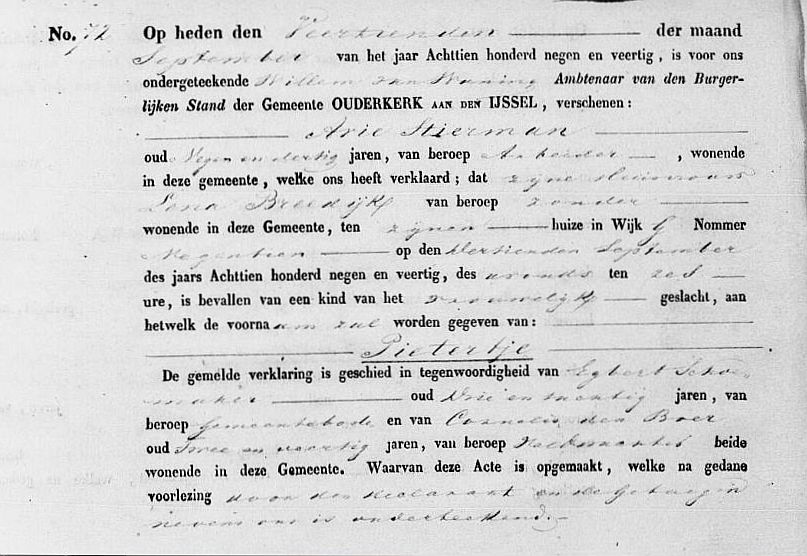 No. 72 Op heden den Veertienden der maand
September van het jaar Achttien honderd negen en veertig, is voor ons
ondergeteekende Willem van Waning Ambtenaar van den Burger-
lijken Stand der Gemeente OUDERKERK AAN DEN IJSSEL, verschenen:
Arie Stierman
oud Negen en dertig jaren, van beroep Arbeider, wonende
in deze gemeente, welke ons heeft verklaard; dat zijne Huisvrouw
Lena Breedijk van beroep zonder
wonende in deze Gemeente, ten zijnen huize in Wijk G Nommer
Negentien op den Dertienden September
des jaars Achttien honderd negen en veertig, des avonds ten zes
ure, is bevallen van een kind van het vrouwelijk geslacht, aan
hetwelk de voornaam zal worden gegeven van:
Pietertje
De gemelde verklaring is geschied in tegenwoordigheid van Egbert Schoe-
maker oud Drie en tachtig jaren, van
beroep Gemeentebode en van Cornelis den Boer
oud Twee en veertig jaren, van beroep Veldwachter beide
wonende in deze Gemeente. Waarvan deze Acte is opgemaakt, welke na gedane
voorlezing door den declarant en de getuigen
nevens ons is onderteekend.